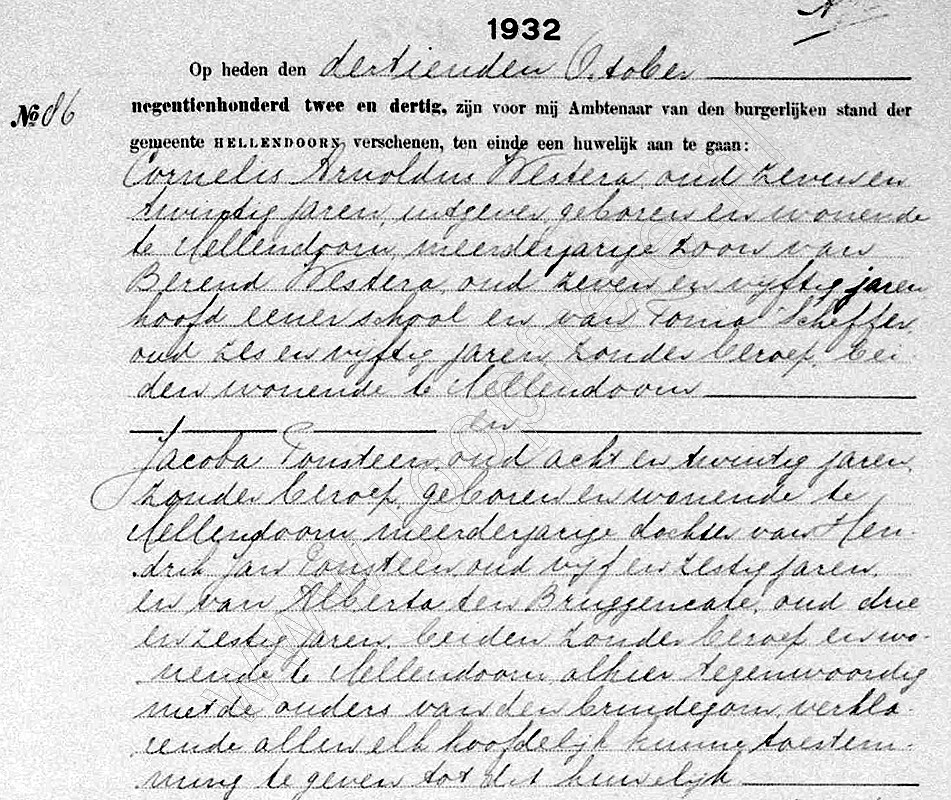 1932
Op heden den dertienden October
No 86
negentienhonderd twee en dertig, zijn voor mij Ambtenaar van den burgerlijken stand der
gemeente HELLENDOORN verschenen, ten einde een huwelijk aan te gaan:
Cornelis Arnoldus Westera, oud zeven en
twintig jaren, uitgever, geboren en wonende
te Hellendoorn, meerderjarige zoon van
Berend Westera, oud zeven en vijftig jaren
hoofd eener school en van Scheffer
oud zes en vijftig jaren zonder beroep, bei-
den wonende te Hellendoorn
en
Jacoba Ponsteen, oud acht en twintig jaren,
zonder beroep, geboren en wonende te
Hellendoorn, meerderjarige dochter van Hen-
drik Jan Ponsteen, oud vijf en zestig jaren,
en van Alberta ten Bruggencate, oud drie
en zestig jaren, beiden zonder beroep en wo-
nende te Hellendoorn, alhier tegenwoordig
met de ouders van den bruidegom, verkla-
rende allen elk hoofdelijk hunne toestem-
ming te geven tot dit huwelijk